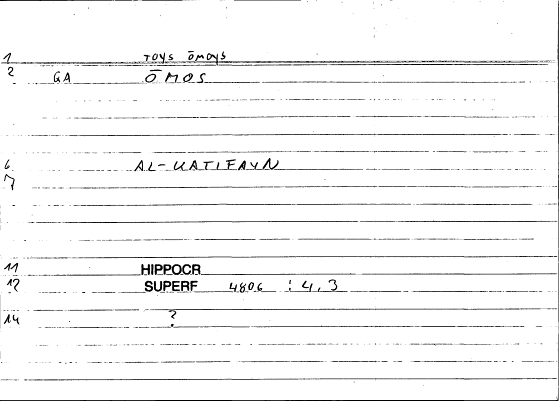 1 TOYS ŌMOYS
2 GA ŌMOS
6 AL-KATIFAYN
7
11 HIPPOCR
12 SUPERF 4806 : 4,3
14 ?